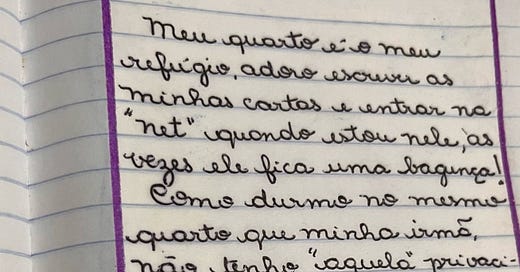 Meu quarto é o meu
refúgio, adoro escrever as
minhas cartas e entrar na
"net" quando estou nele, as
vezes ele fica uma bagunça!
Como durmo no mesmo
quarto que minha irmã,
não tenho "aquela" privaci-